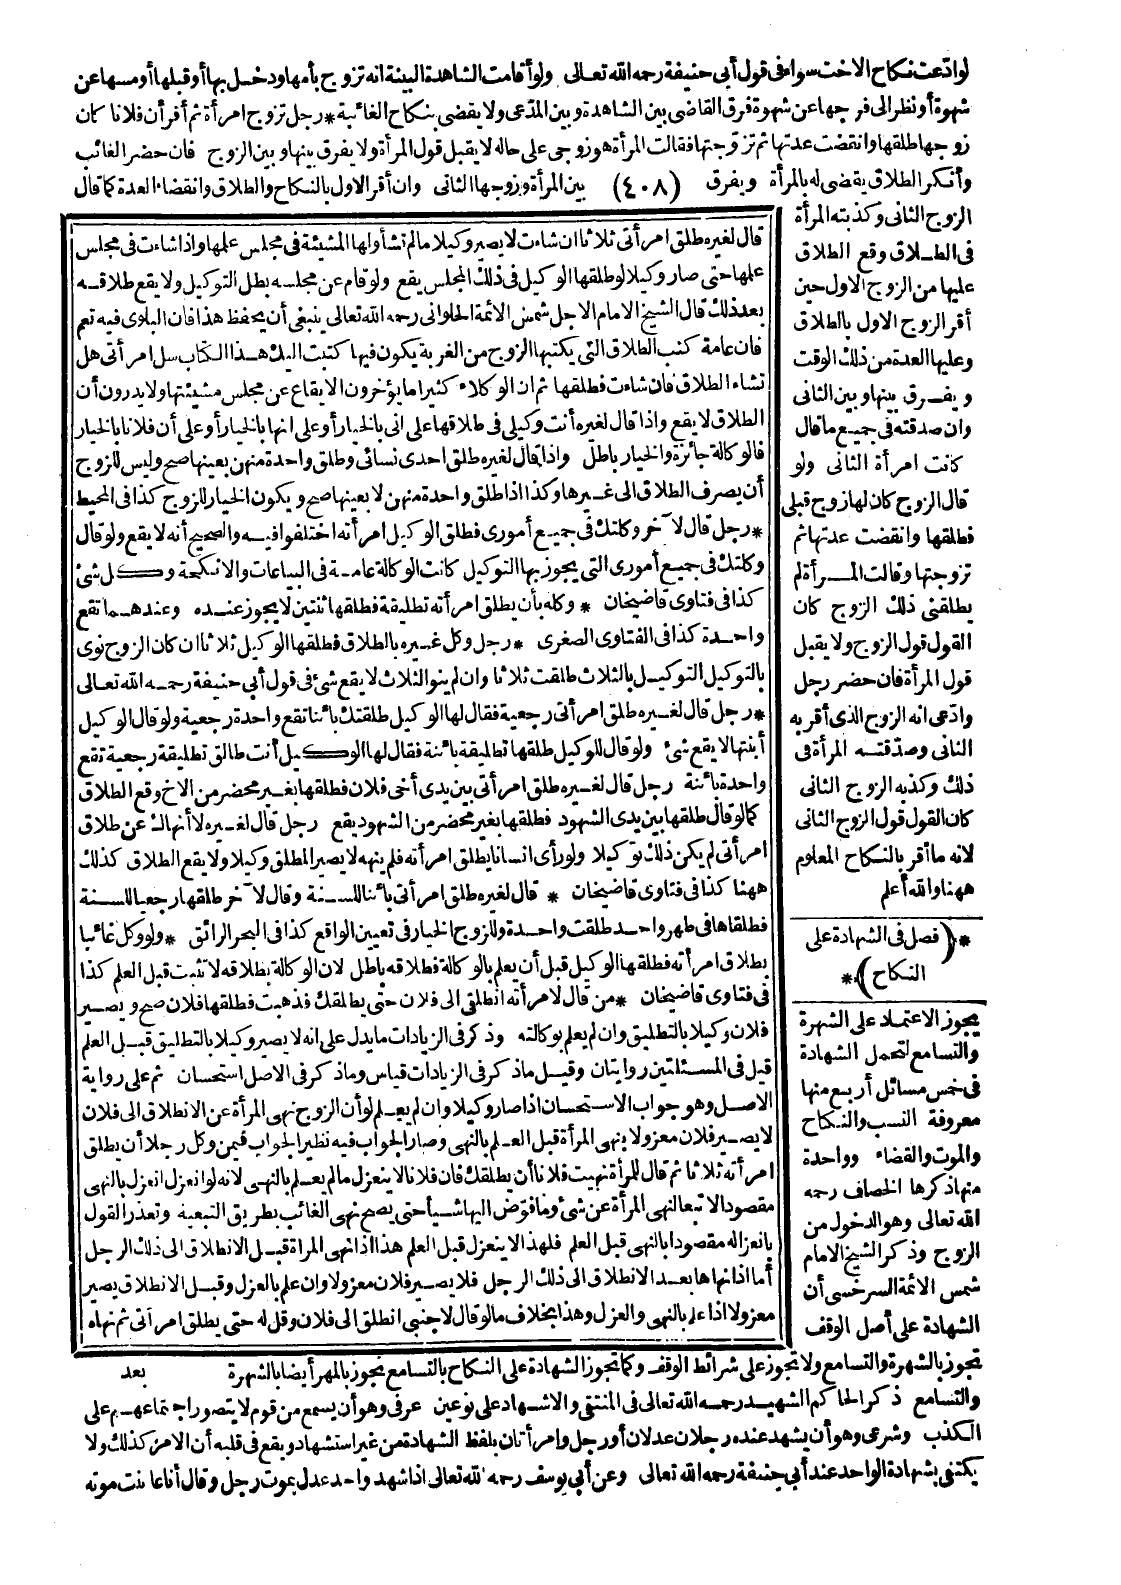 لوادعت نكاح الاخت سواء فى قول أبى حنيفة رحمه الله تعالى ولو أقامت الشاهدة البينة انه تزوج بأمها ودخل بها أو قبلها أو مسها عن
شهوة أو نظر الى فرجها عن شهوة فرق القاضى بين الشاهدة وبين المدعى ولا يقضى بنكاح الغائبة * رجل تزوج امرأة ثم أقر أن فلانا كان
زوجها طلقها وانقضت عدتها ثم تزوجتها فقالت المرأة هو زوجى على حاله لا يقبل قول المرأة ولا يفرق بينها وبين الزوج فان حضر الغائب
وأنكر الطلاق يقضى له بالمرأة ويفرق (٤٠٨) بين المرأة وزوجها الثانى وان أقر الاول بالنكاح والطلاق وانقضاء العدة كما قال
الزوج الثانى وكذبته المرأة
فى الطلاق وقع الطلاق
عليها من الزوج الاول حين
أقر الزوج الاول بالطلاق
وعليها العدة من ذلك الوقت
ويفرق بينها وبين الثانى
وان صدقته فى جميع ما قال
كانت امرأة الثانى ولو
قال الزوج كان لها زوج قبلى
فطلقها وانقضت عدتها ثم
تزوجتها وقالت المرأة لم
يطلقنى ذلك الزوج كان
القول قول الزوج ولا يقبل
قول المرأة فان حضر رجل
وادعى انه الزوج الذى أقر به
الثانى وصدقته المرأة فى
ذلك وكذبه الزوج الثانى
كان القول قول الزوج الثانى
لانه ما أقر بالنكاح المعلوم
ههنا والله أعلم
*(فصل فى الشهادة على
النكاح)*
يجوز الاعتماد على الشهرة
والتسامع لتحمل الشهادة
فى خمس مسائل أربع منها
معروفة النسب والنكاح
والموت والقضاء وواحدة
منها ذكرها الخصاف رحمه
الله تعالى وهو الدخول من
الزوج وذكر الشيخ الامام
شمس الائمة السرخسى أن
الشهادة على أصل الوقف
تجوز بالشهرة والتسامع ولا تجوز على شرائط الوقف وكما تجوز الشهادة على النكاح بالتسامع تجوز بالمهر أيضا بالشهرة
والتسامع ذكر الحاكم الشهيد رحمه الله تعالى فى المنتقى والاشهاد على نوعين عرفى وهو أن يسمع من قوم لا يتصور اجتماعهم على
الكذب وشرعى وهو أن يشهد عنده رجلان عدلان أو رجل وامرأتان بلفظ الشهادة من غير استشهاد ويقع فى قلبه أن الامر كذلك ولا
يكتفى بشهادة الواحد عند أبى حنيفة رحمه الله تعالى وعن أبى يوسف رحمه الله تعالى اذا شهد واحد عدل بموت رجل وقال أنا عاينت موته
قال لغيره طلق امرأتى ثلاثا ان شاءت لا يصير وكيلا ما لم تشأ ولها المشيئة فى مجلس علمها واذا شاءت فى مجلس
علمها حتى صار وكيلا لو طلقها الوكيل فى ذلك المجلس يقع ولو قام عن مجلسه بطل التوكيل ولا يقع طلاقه
بعد ذلك قال الشيخ الامام الاجل شمس الائمة الحلوانى رحمه الله تعالى ينبغى أن يحفظ هذا فان البلوى فيه تعم
فان عامة كتب الطلاق التى يكتبها الزوج من الغربة يكون فيها كتبت اليك هذا الكتاب سل امرأتى هل
تشاء الطلاق فان شاءت فطلقها ثم ان الوكلاء كثيرا ما يؤخرون الايقاع عن مجلس مشيئتها ولا يدرون أن
الطلاق لا يقع واذا قال لغيره أنت وكيلى فى طلاقها على انى بالخيار أو على انها بالخيار أو على أن فلانا بالخيار
فالوكالة جائزة والخيار باطل واذا قال لغيره طلق احدى نسائى وطلق واحدة منهن بعينها صح وليس للزوج
أن يصرف الطلاق الى غيرها وكذا اذا طلق واحدة منهن لا بعينها صح ويكون الخيار للزوج كذا فى المحيط
* رجل قال لآخر وكلتك فى جميع أمورى فطلق الوكيل امرأته اختلفوا فيه والصحيح أنه لا يقع ولو قال
وكلتك فى جميع أمورى التى يجوز بها التوكيل كانت الوكالة عامة فى البياعات والانكحة وكل شئ
كذا فى فتاوى قاضيخان * وكله بأن يطلق امرأته تطليقة فطلقها ثنتين لا يجوز عنده وعندهما تقع
واحدة كذا فى الفتاوى الصغرى * رجل وكل غيره بالطلاق فطلقها الوكيل ثلاثا ان كان الزوج نوى
بالتوكيل التوكيل بالثلاث طلقت ثلاثا وان لم ينو الثلاث لا يقع شئ فى قول أبى حنيفة رحمه الله تعالى
* رجل قال لغيره طلق امرأتى رجعية فقال لها الوكيل طلقتك بائنا تقع واحدة رجعية ولو قال الوكيل
أبنتها لا يقع شئ ولو قال للوكيل طلقها تطليقة بائنة فقال لها الوكيل أنت طالق تطليقة رجعية تقع
واحدة بائنة رجل قال لغيره طلق امرأتى بين يدى أخى فلان فطلقها بغير محضر من الاخ وقع الطلاق
كما لو قال طلقها بين يدى الشهود فطلقها بغير محضر من الشهود يقع رجل قال لغيره لا أنهاك عن طلاق
امرأتى لم يكن ذلك توكيلا ولو رأى انسانا يطلق امرأته فلم ينهه لا يصير المطلق وكيلا ولا يقع الطلاق كذلك
ههنا كذا فى فتاوى قاضيخان * قال لغيره طلق امرأتى بائنا للسنة وقال لآخر طلقها رجعيا للسنة
فطلقاها فى طهر واحد طلقت واحدة وللزوج الخيار فى تعيين الواقع كذا فى البحر الرائق * ولو وكل غائبا
بطلاق امرأته فطلقها الوكيل قبل أن يعلم بالوكالة فطلاقه باطل لان الوكالة بطلاقه لا تثبت قبل العلم كذا
فى فتاوى قاضيخان * من قال لامرأته انطلقى الى فلان حتى يطلقك فذهبت فطلقها فلان صح ويصير
فلان وكيلا بالتطليق وان لم يعلم بوكالته وذكر فى الزيادات ما يدل على انه لا يصير وكيلا بالتطليق قبل العلم
قيل فى المسئلتين روايتان وقيل ما ذكر فى الزيادات قياس وما ذكر فى الاصل استحسان ثم على رواية
الاصل وهو جواب الاستحسان اذا صار وكيلا وان لم يعلم لو أن الزوج نهى المرأة عن الانطلاق الى فلان
لا يصير فلان معزولا بنهى المرأة قبل العلم بالنهى وصار الجواب فيه نظير الجواب فيمن وكل رجلا أن يطلق
امرأته ثلاثا ثم قال للمرأة نهيت فلانا أن يطلقك فان فلانا لا ينعزل ما لم يعلم بالنهى لانه لو انعزل انعزل بالنهى
مقصودا لا تبعا لنهى المرأة عن شئ وما فوض اليها شيأ حتى يصح نهى الغائب بطريق التبعية وتعذر القول
بانعزاله مقصودا بالنهى قبل العلم فلهذا لا ينعزل قبل العلم هذا اذا نهى المرأة قبل الانطلاق الى ذلك الرجل
أما اذا نهاها بعد الانطلاق الى ذلك الرجل فلا يصير فلان معزولا وان علم بالعزل وقبل الانطلاق يصير
معزولا اذا علم بالنهى والعزل وهذا بخلاف ما لو قال لاجنبى انطلق الى فلان وقل له حتى يطلق امرأتى ثم نهاه
بعد